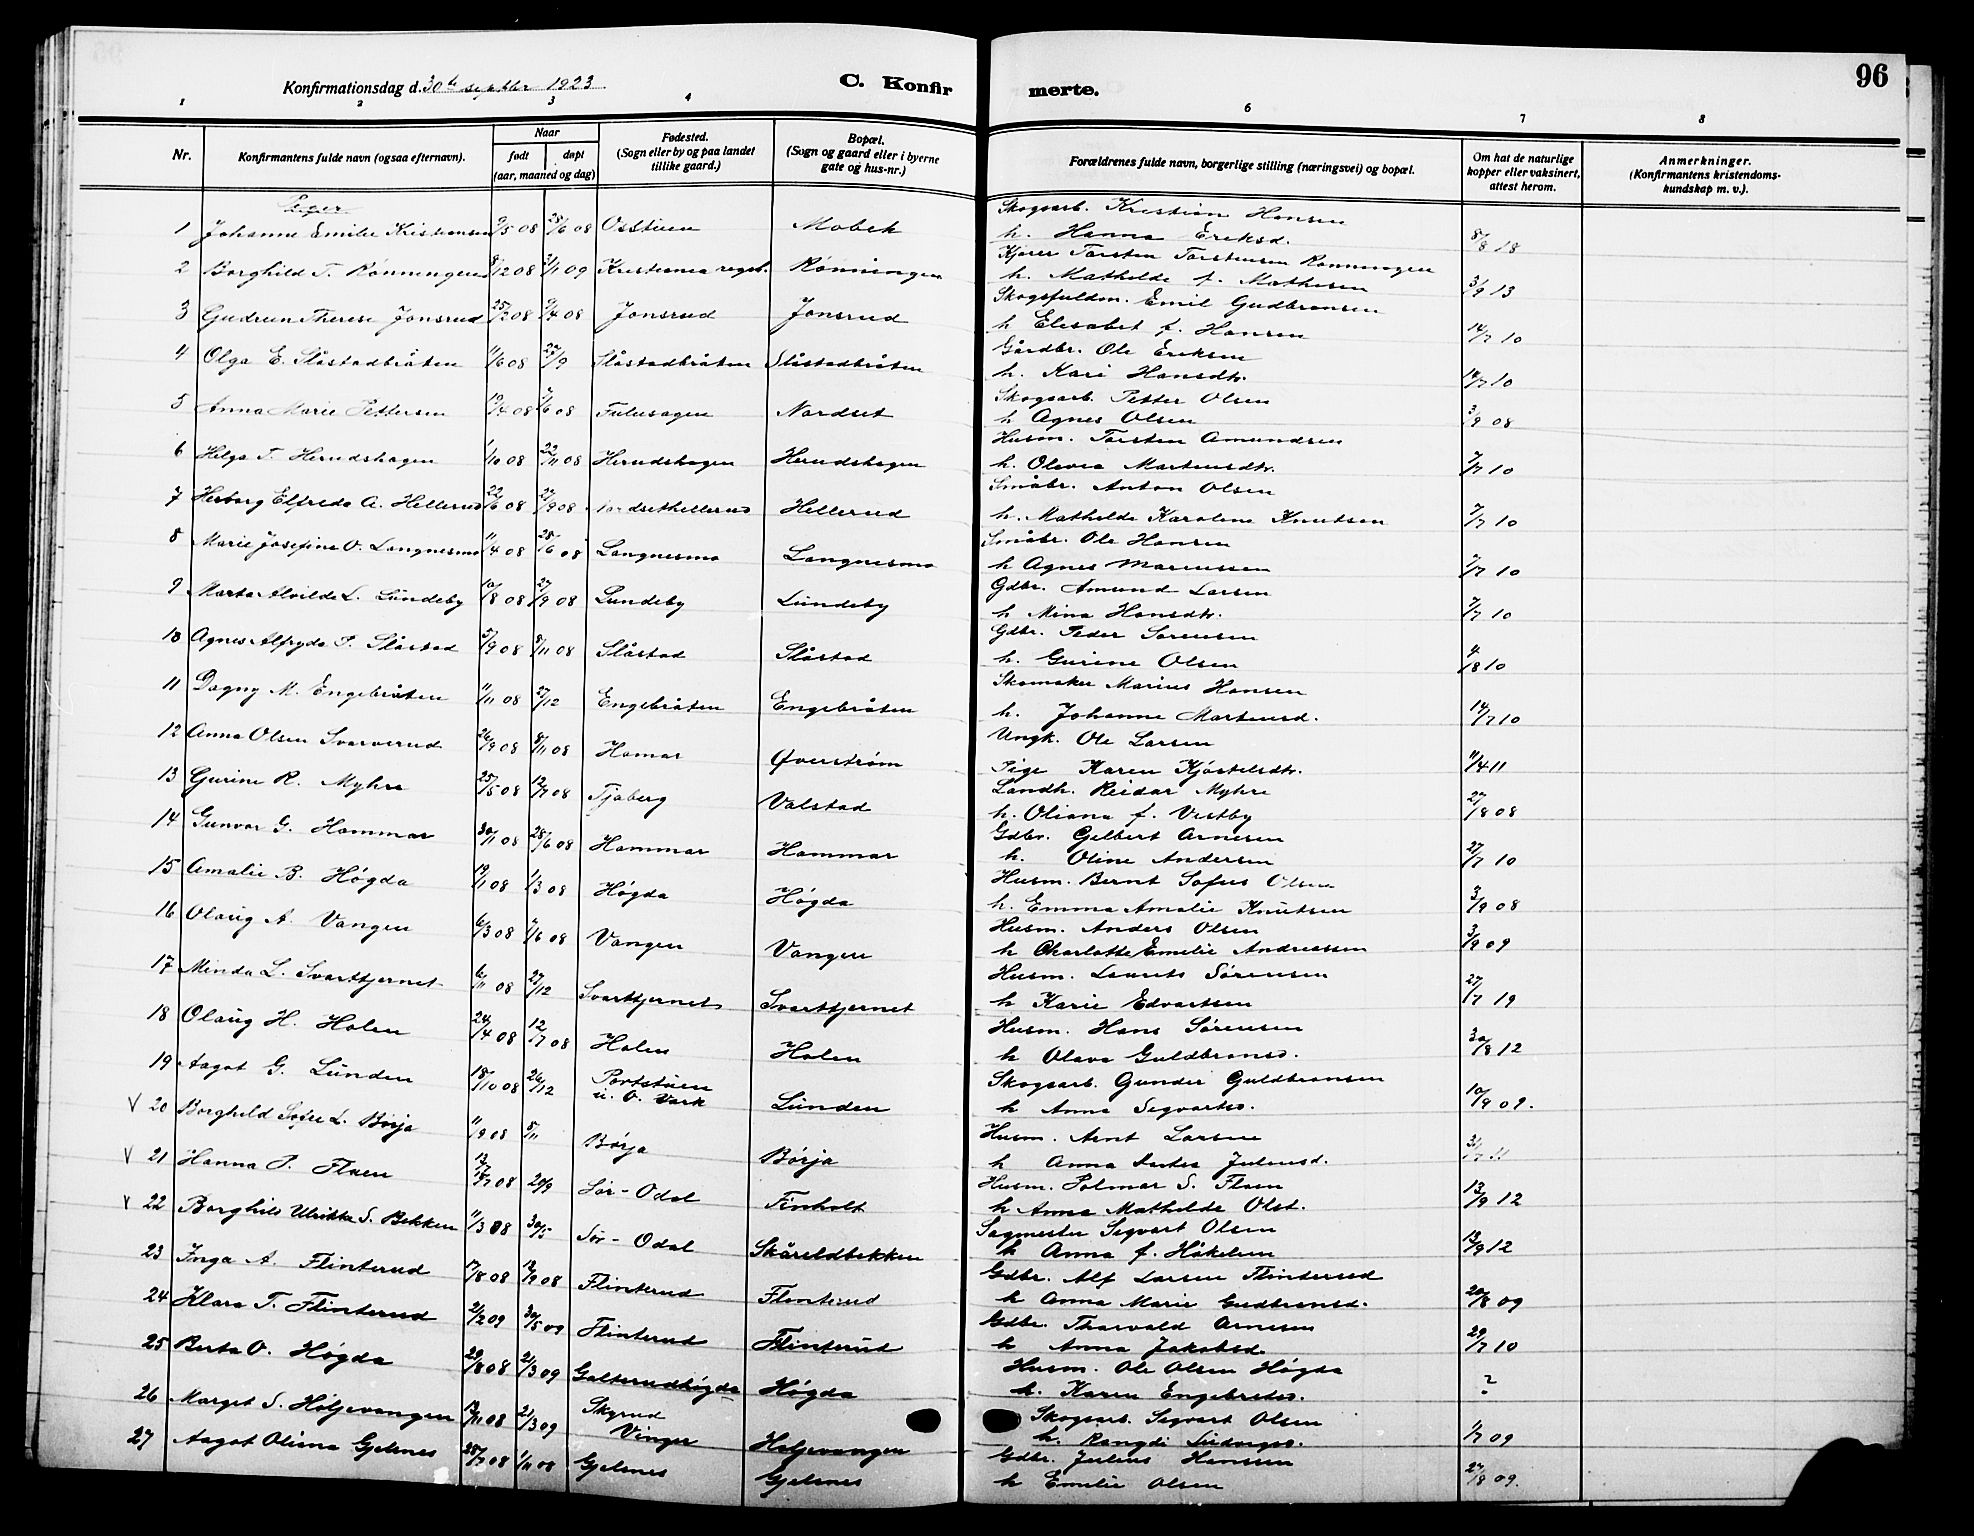 96
Konfirmationsdag d. 30te septbr 1923.
C. Konfirmerte.
1 2 3 4 5 6 7 8
Nr. Konfirmantens fulde navn (ogsaa efternavn). Naar født døpt (aar, maaned og dag) Fødested. (Sogn eller by og paa landet tillike gaard.) Bopæl. (Sogn og gaard eller i byerne gate og hus-nr.) Forældrenes fulde navn, borgerlige stilling (næringsvei) og bopæl. Om hat de naturlige kopper eller vaksinert, attest herom. Anmerkninger. (Konfirmantens kristendomskundskap m. v.).
Piger
1 Johanne Emilie Kristiansen 9/5 08 28/6 08 Osstuen Mobek Skogsarb. Kristian Hansen
h. Hanna Eriksd. 8/8 18
2 Borghild T. Rønningen 8/12 08 3/1 09 Kristiania Rønningen Kjører Torsten Torstensen Rønningen
h. Mathilde f. Mathisen 3/9 13
3 Gudrun Therese Jonsrud 25/2 08 9/4 08 Jonsrud Jonsrud Skogsfuldm. Emil Gudbransen
h Elisabet f. Hansen 14/7 10
4 Olga E. Slåstadbråten 11/6 08 27/9 Slåstadbråten Slåstadbråten Gårdbr. Ole Eriksen
h. Kari Hansdtr. 14/7 10
5 Anna Marie Pettersen 19/4 08 7/6 08 Fulusagen Nordset Skogsarb. Petter Olsen
h Agnes Olsen 3/9 08
6 Helga T. Herudshagen 1/10 08 22/11 08 Herudshagen Herudshagen Husm. Torsten Amundsen
h. Olavia Martinusdtr. 7/7 10
7 Herborg Elfrida A. Hellerud 22/6 08 27/9 08 Nordsethellerud Hellerud Småbr. Anton Olsen
h. Mathilde Karoline Knutsen 7/7 10
8 Marie Josefine O. Langnesmo 11/4 08 28/6 08 Langnesmo Langnesmo Småbr. Ole Hansen
h Agnes Mariussen 7/7 10
9 Marta Alvilde L. Lundeby 10/8 08 27/9 08 Lundeby Lundeby Gdbr. Amund Larsen
h Mina Hansdtr. 7/7 10
10 Agnes Alfryda P. Slåstad 5/9 08 8/11 08 Slåstad Slåstad Gdbr. Peder Sørensen
h. Gurine Olsen 4/8 10
11 Dagny M. Engebråten 11/11 08 27/12 Engebråten Engebråten Skomaker Marius Hansen
h. Johanne Martinusd. 14/7 10
12 Anna Olsen Svarverud 26/9 08 8/11 08 Hamar Øverstrøm Ungk. Ole Larsen
Pige Karen Kjøstelsdtr. 11/4 11
13 Gurine R. Myhre 25/5 08 12/7 08 Tjaberg Valstad Landh. Reidar Myhre
h. Oliana f. Vestby 27/8 08
14 Gunvor G. Hammar 30/11 08 28/6 08 Hammar Hammar Gdbr. Gelbert Arnesen
h. Oline Andersen 27/7 10
15 Amalie B. Høgda 19/1 08 1/3 08 Høgda Høgda Husm. Bernt Sofus Olsen
h. Emma Amalie Knutsen 3/9 08
16 Olaug A. Vangen 6/3 08 7/6 08 Vangen Vangen Husm. Anders Olsen
h Charlotte Emilie Andreassen 3/9 09
17 Minda L. Svarttjernet 6/11 08 27/12 Svarttjernet Svarttjernet Husm. Laurits Sørensen
h Karie Edvartsen 27/7 19
18 Olaug H. Holen 24/4 08 12/7 08 Holen Holen Husm. Hans Sørensen
h Olava Guldbransd. 30/8 12
19 Aagot G. Lunden 18/10 08 26/12 Portstuen u. O. Vark Lunden Skogsarb. Gunder Guldbransen
h Anna Segvartsd. 10/9 09.
V 20 Borghild Sofie L. Børja 11/9 08 8/11 Børja Børja Husm. Arnt Larsen
h Anna Juliusd. 31/7 11
V 21 Hanna P. Floen 17/7 08 20/9 Sør-Odal Finholt Husm. Palmar S. Floen
h Anna Mathilde Olsd. 13/9 12
V 22 Borghild Ulrikke S. Bekken 11/3 08 30/5 Sør-Odal Skåreldbekken Sagmester Segvart Olsen
h Anna f. Håkelsen 13/9 12
23 Inga A. Flinterud 17/8 08 13/9 08 Flinterud Flinterud Gdbr. Alf Larsen Flinterud
h Anna Marie Gudbransd. 20/8 09
24 Klara T. Flinterud 2/2 09 30/5 09 Flinterud Flinterud Gdbr. Thorvald Arnesen
h Anna Jakobsd. 29/7 10
25 Berta O. Høgda 29/8 08 21/3 09 Galterudhøgda Høgda Husm. Ole Olsen Høgda
h. Karen Engebretsd. ?
26 Marget S. Høljevangen 13/11 08 21/3 09 Skyrud Vinger Høljevangen Skogsarb. Segvart Olsen
h. Rangdi Ludvigsd. 1/7 09
27 Aagot Olima Gjelsnes 25/7 08 1/11 08 Gjelsnes Gjelsnes Gdbr. Julius Hansen
h Emilie Olsen 27/8 09.